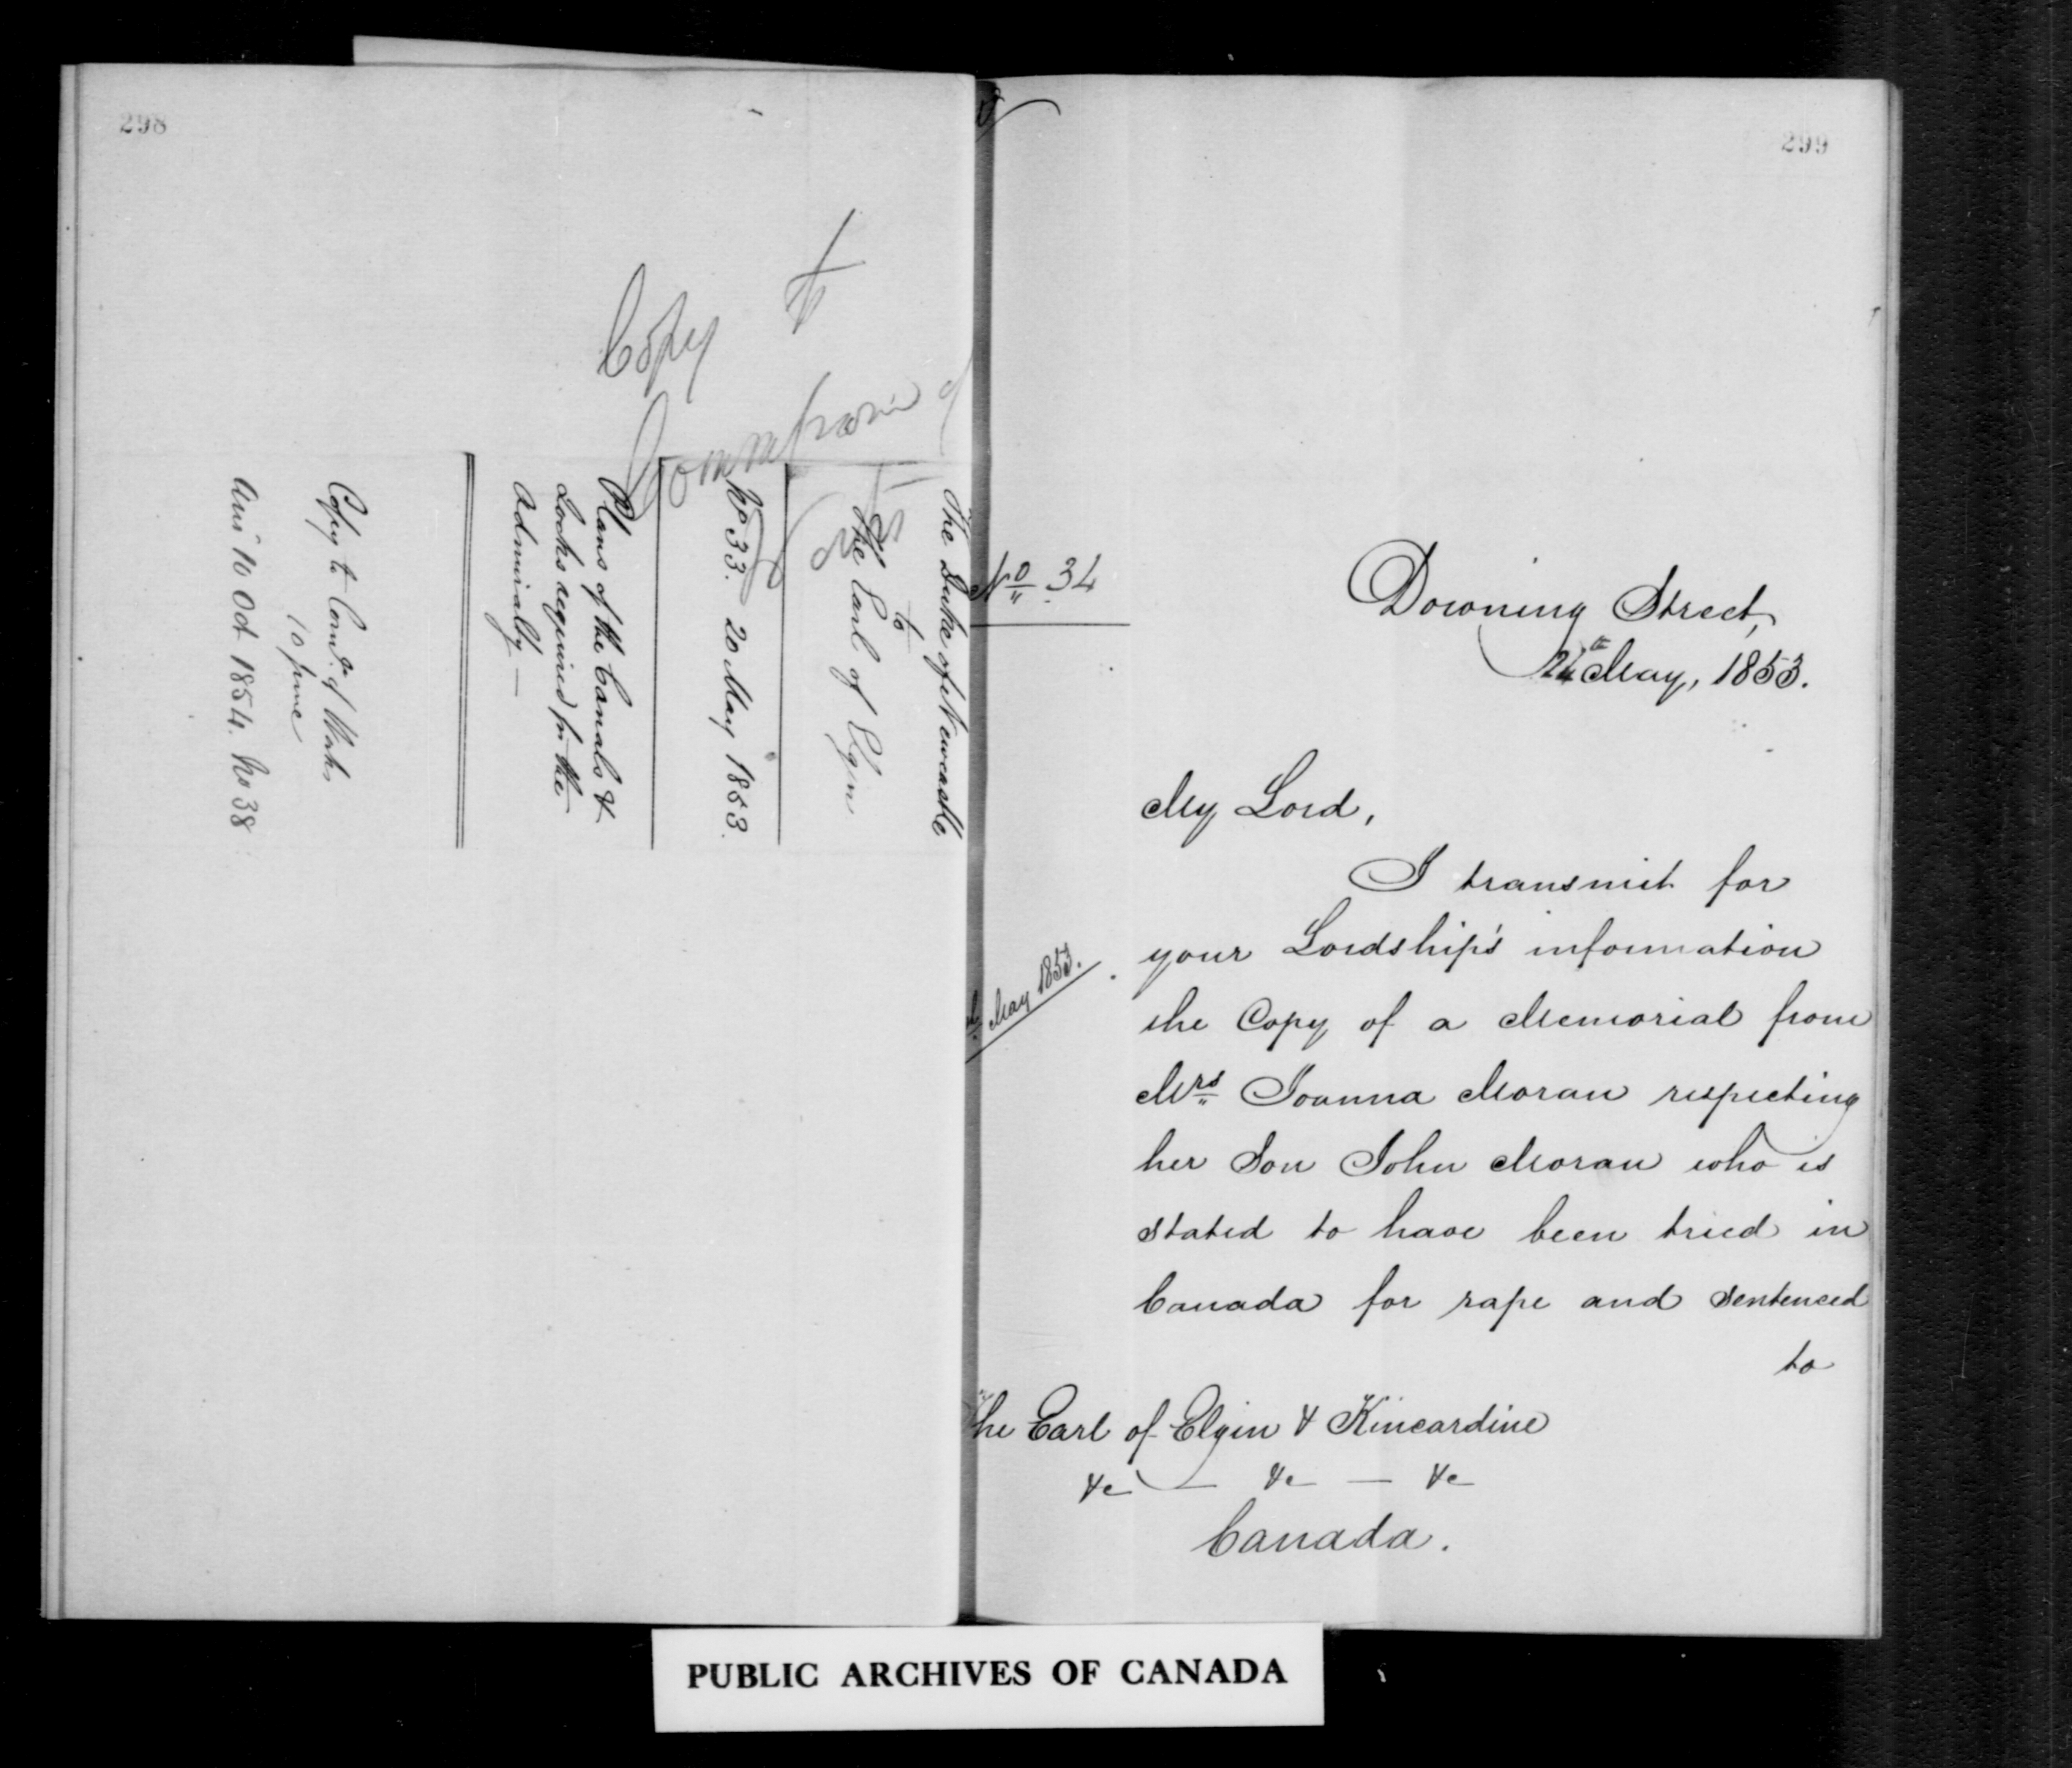 298
Copy to
The Duke of Newcastle
to
The Earl of Elgin
No 33. 20 May 1853.
Plans of the Canals &
Locks required for the
Admiralty —
Copy to Comrs. of Works
10 June
Ans 10 Oct 1854. No 38
299
No. 34
Downing Street,
24th May, 1853.
My Lord,
I transmit for
your Lordship's information
May 1853.
the Copy of a Memorial from
Mrs Joanna Moran respecting
her Son John Moran who is
stated to have been tried in
Canada for rape and sentenced
to
The Earl of Elgin & Kincardine
&c — &c — &c
Canada.
PUBLIC ARCHIVES OF CANADA